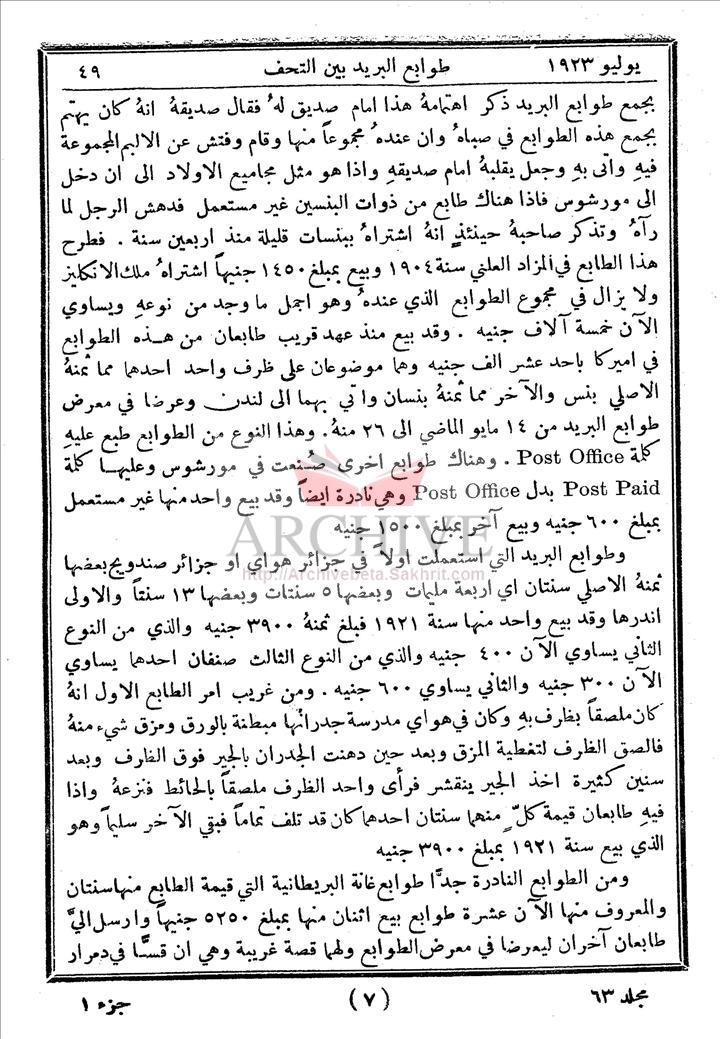 يوليو ١٩٢٣ طوابع البريد بين التحف ٤٩
بجمع طوابع البريد ذكر اهتمامهُ هذا امام صديق لهُ فقال صديقهُ انهُ كان يهتم
بجمع هذه الطوابع في صباهُ وان عندهُ مجموعاً منها وقام وفتش عن الالبم المجموعة
فيهِ واتى بهِ وجعل يقلبهُ امام صديقهِ واذا هو مثل مجاميع الاولاد الى ان دخل
الى مورشوس فاذا هناك طابع من ذوات البنسين غير مستعمل فدهش الرجل لما
رآهُ وتذكر صاحبهُ حينئذٍ انهُ اشتراهُ ببنسات قليلة منذ اربعين سنة . فطرح
هذا الطابع في المزاد العلني سنة ١٩٠٤ وبيع بمبلغ ١٤٥٠ جنيهاً اشتراهُ ملك الانكليز
ولا يزال في مجموع الطوابع الذي عندهُ وهو اجمل ما وجد من نوعهِ ويساوي
الآن خمسة آلاف جنيه . وقد بيع منذ عهد قريب طابعان من هذه الطوابع
في اميركا باحد عشر الف جنيه وهما موضوعان على ظرف واحد احدهما مما ثمنهُ
الاصلي بنس والآخر مما ثمنهُ بنسان واتي بهما الى لندن وعرضا في معرض
طوابع البريد من ١٤ مايو الماضي الى ٢٦ منهُ . وهذا النوع من الطوابع طبع عليهِ
كلمة Post Office . وهناك طوابع اخرى صُنعت في مورشوس وعليها كلمة
Post Paid بدل Post Office وهي نادرة ايضاً وقد بيع واحد منها غير مستعمل
بمبلغ ٦٠٠ جنيه وبيع آخر بمبلغ ١٥٠٠ جنيه
ARCHIVE
وطوابع البريد التي استعملت اولاً في جزائر هواي او جزائر صندويج بعضها
http://Archivebeta.Sakhrit.com
ثمنهُ الاصلي سنتان اي اربعة مليمات وبعضها ٥ سنتات وبعضها ١٣ سنتاً والاولى
اندرها وقد بيع واحد منها سنة ١٩٢١ فبلغ ثمنهُ ٣٩٠٠ جنيه والذي من النوع
الثاني يساوي الآن ٤٠٠ جنيه والذي من النوع الثالث صنفان احدهما يساوي
الآن ٣٠٠ جنيه والثاني يساوي ٦٠٠ جنيه . ومن غريب امر الطابع الاول انهُ
كان ملصقاً بظرف بهِ وكان في هواي مدرسة جدرانها مبطنة بالورق ومزق شيء منهُ
فالصق الظرف لتغطية المزق وبعد حين دهنت الجدران بالجير فوق الظرف وبعد
سنين كثيرة اخذ الجير ينقشر فرأى واحد الظرف ملصقاً بالحائط فنزعهُ واذا
فيهِ طابعان قيمة كلٍّ منهما سنتان احدهما كان قد تلف تماماً فبقي الآخر سليماً وهو
الذي بيع سنة ١٩٢١ بمبلغ ٣٩٠٠ جنيه
ومن الطوابع النادرة جدًّا طوابع غانة البريطانية التي قيمة الطابع منها سنتان
والمعروف منها الآن عشرة طوابع بيع اثنان منها بمبلغ ٥٢٥٠ جنيهاً وارسل اليَّ
طابعان آخران ليعرضا في معرض الطوابع ولهما قصة غريبة وهي ان قسًّا في دمرار
مجلد ٦٣ (٧) جزء ١